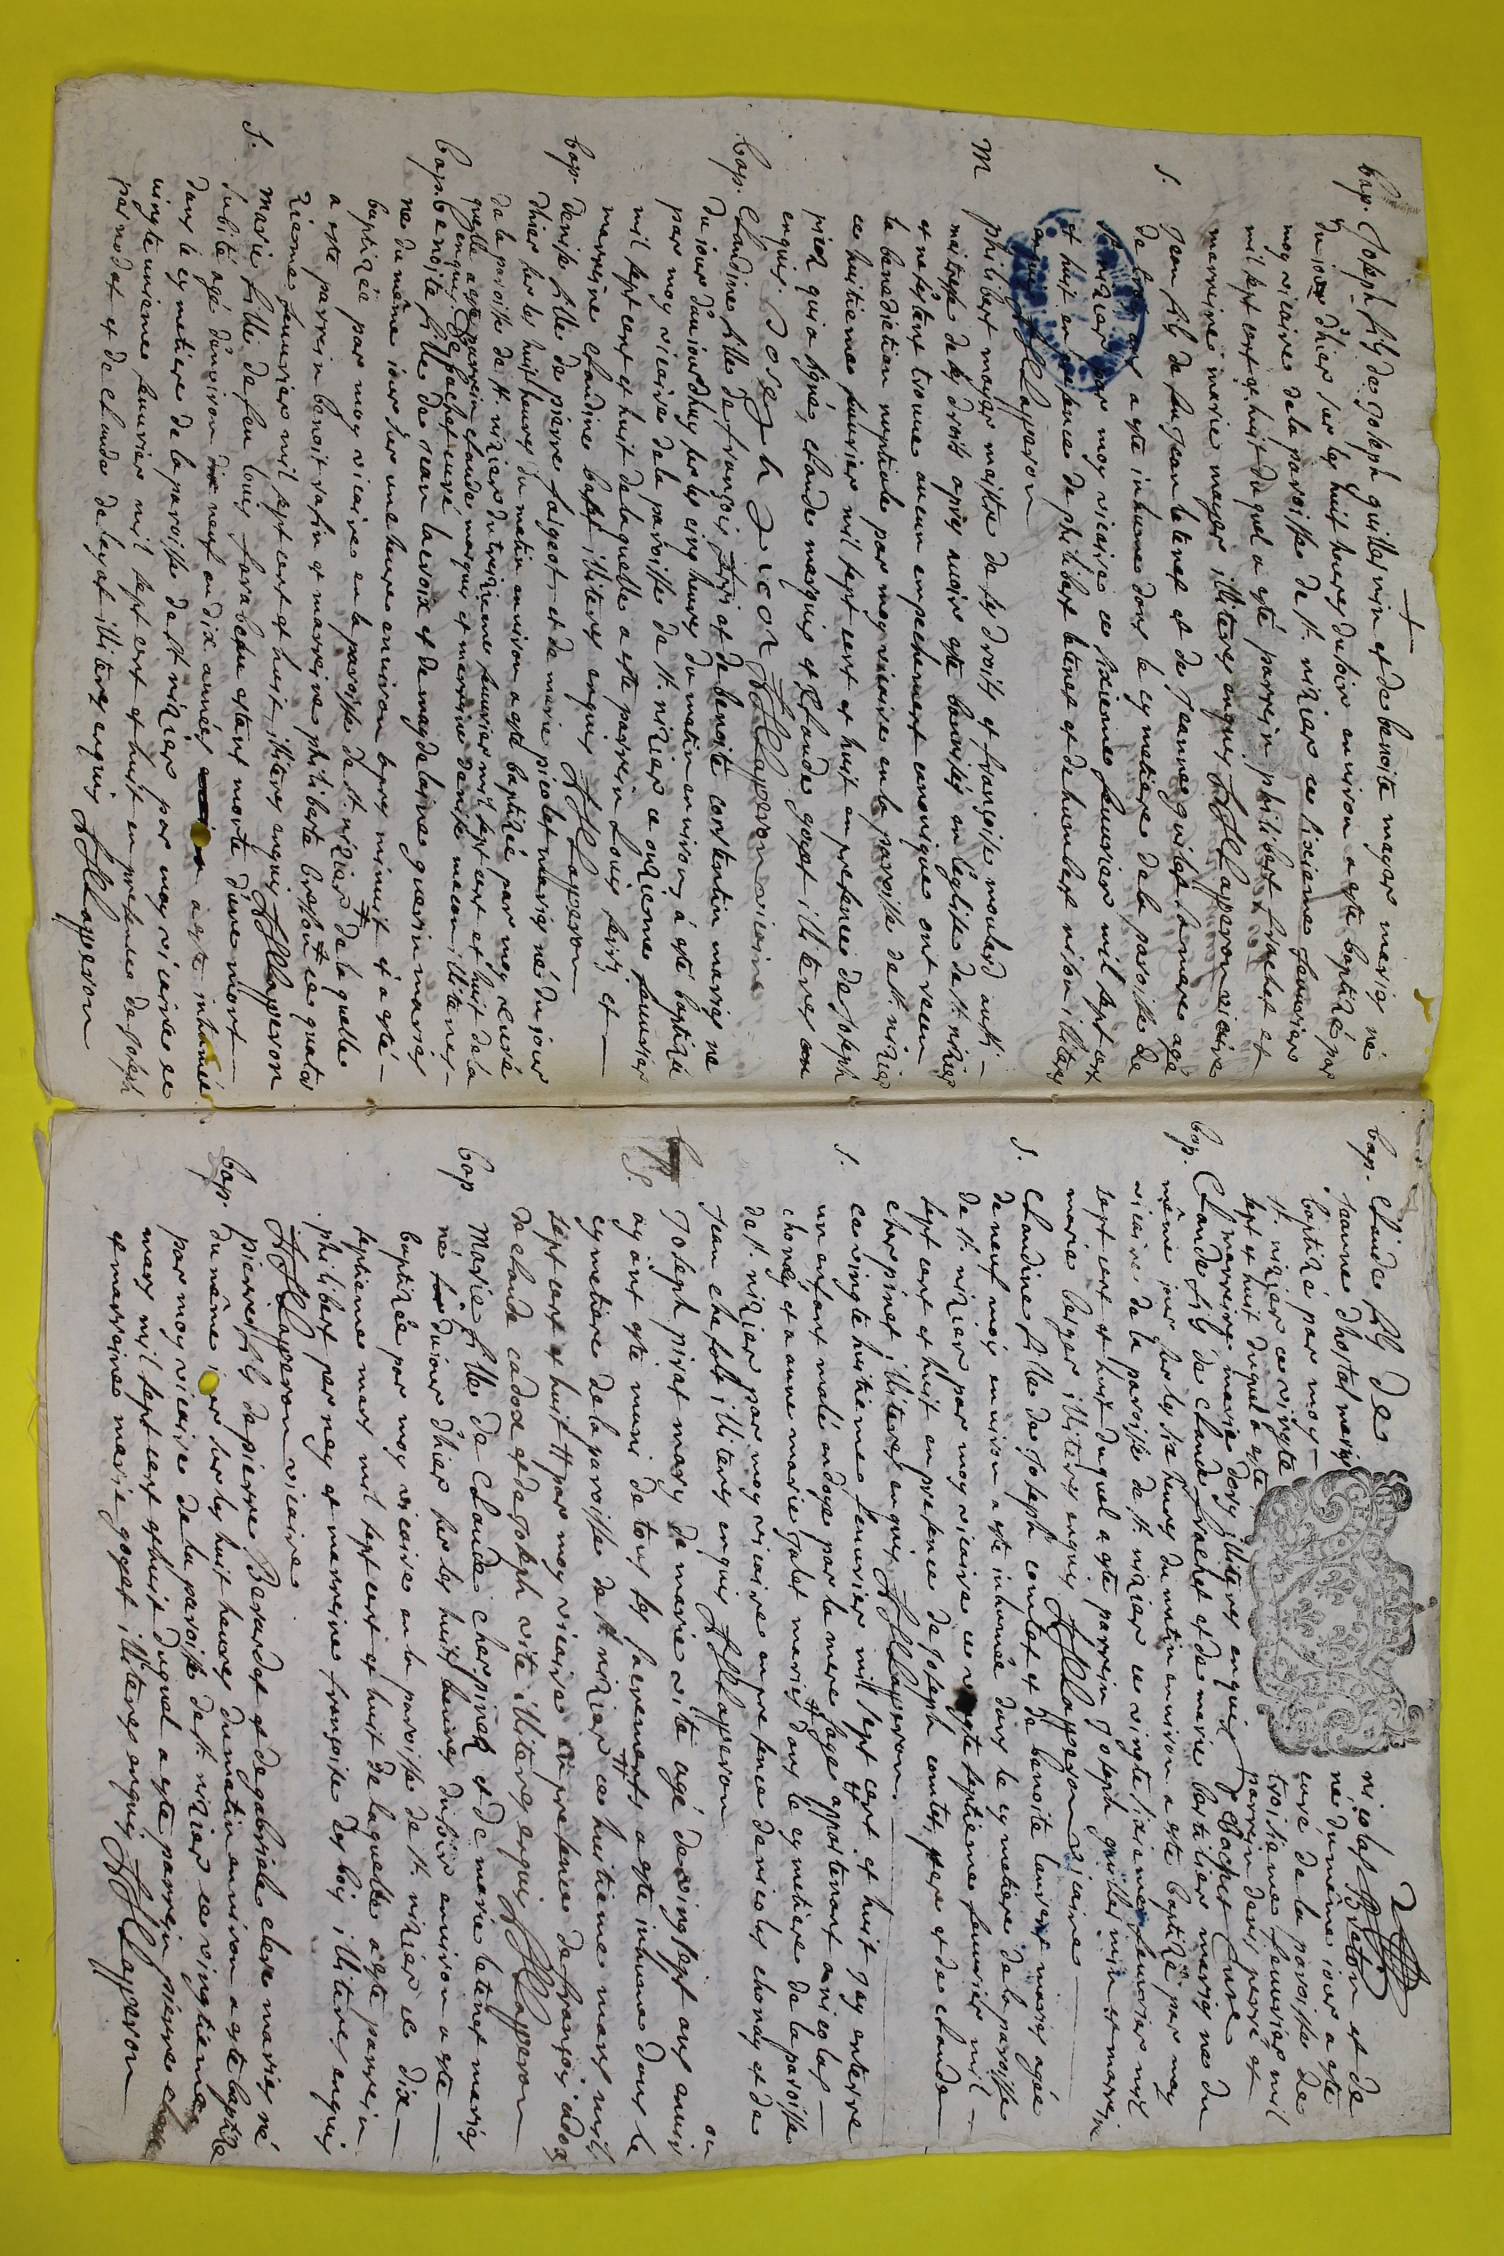 bap. Joseph fils de Joseph guillermin et de benoite mayer mariés né
du jour d'hier sur les huit heures du soir environ a esté baptizé par
moy vicaire de la paroisse de st. nizier ce sixieme feuvrier
mil sept cent et huit duquel a esté parrein philibert frachet et
marreine marie mayer illiteres enquis Lapperon vicaire
S. Jean fils de feu Jean le tenet et de Jeanne guillet sa mere agé
de a esté inhumé dans le cymetiere de la paroisse de
st. nizier par moy vicaire ce sixieme feuvrier mil sept cent
et huit en presence de philibert letenet et de humbert illiteres
enquis Lapperon
M philibert mayer maistre de ses droits et françoise moulard aussi
maitresse de ses droits apres avoir esté bannisés en l'eglise de st. nizier
et ne s'estent trouvé aucun empechement canonique ont receu
la benediction nuptiale par moy vicaire en la paroisse de st. nizier
ce huitieme feuvrier mil sept cent et huit en presence de Joseph
picoz qui a signé, claude marguis et claude goyet illiteres
enquis. Joseph picoz Lapperon vicaire
bap. Claudine fille de françois et de benoite constantin mariés né
du jour d'aujourdhuy sur les cinq heures du matin environ, a esté baptizée
par moy vicaire de la paroisse de st. nizier ce onzieme feuvrier
mil sept cent et huit de laquelle a esté parrein Louis et
marreine claudine illiteres enquis Lapperon
bap. denise fille de pierre fargeot et de marie picolet mariés né du jour
d'hier sur les huit heures du matin environ a esté baptizée par moy curé
de la paroisse de st. nizier du treizieme feuvrier mil sept cent et huit de la
quelle a esté parrein claude marguis et marreine denise macon illiteres
enquis Bachet curé
bap. benoite fille de Jean lacroix et de magdelaine guerin mariés
née du même jour sur une heure environ apres minuit et a esté
baptizée par moy vicaire en la paroisse de st. nizier de laquelle
a esté parrein benoit et marreine philiberte ce quator
zieme feuvrier mil sept cent et huit illiteres enquis Lapperon
S. marie fille de feu louis farabeau estant morte d'une mort
subite agé d'environ neuf ou dix années a esté inhumée
dans le cymetiere de la paroisse de st. nizier par moy vicaire ce
vingt unieme feuvrier mil sept cent et huit en presence de Joseph
pernodat et de claude de layat illiteres enquis Lapperon
bap. claude fils de nicolas Breton et de
Jeanne dhostal mariés né du même jour a esté
baptizé par moy curé de la paroisse de
st. nizier ce vingte troisieme feuvrier mil
sept et huit duquel a esté parrein denis perré et
marreine marie dory illiteres enquis Bachet Curé
bap. Claude fils de claude frachet et de marie bertilier mariés né du
même jour sur les six heures du matin environ a esté baptizé par moy
vicaire de la paroisse de st. nizier ce vingte sixieme feuvrier mil
sept cent et huit duquel a esté parrein Joseph guillermin et marreine
marie berger illiteres enquis Lapperon vicaire
S. claudine fille de Joseph comtet et de benoite laurent mariés agée
de neuf mois environ a esté inhumée dans le cymetiere de la paroisse
de st. nizier par moy vicaire ce vingte septieme feuvrier mil
sept cent et huit en presence de Joseph comtet, pere et de claude
charpinet illiteres enquis Lapperon
S. ce vingte huitieme feuvrier mil sept cent et huit j'ay enterré
un enfant male ondoyé par la mere sage appartenant a nicolas
chonay et a anne marie jolet mariés dans le cymetiere de la paroisse
de st. nizier par moy vicaire en presence de nicolas chonay et de
Jean chefols illiteres enquis Lapperon
S. Joseph pirat mary de marie vite agé de vingt sept ans environ
ayant esté muni de tous les sacrements a esté inhumé dans le
cymetiere de la paroisse de st. nizier ce huitieme mars mil
sept cent et huit par moy vicaire en presence de françois cadoz
de claude cadoz et de Joseph vite illiteres enquis Lapperon
bap Marie fille de Claude charpinet et de marie letenet mariés
né du jour d'hier sur les huit heures du soir environ a esté
baptizée par moy vicaire en la paroisse de st. nizier ce dixe
septieme mars mil sept cent et huit de laquelle a esté parrein
philibert perney et marreine françoise des bois illiteres enquis
Lapperon vicaire
bap. pierre fils de pierre Berardet et de gabriele clere mariés né
du même jour sur les huit heures du matin environ a esté baptizé
par moy vicaire de la paroisse de st. nizier ce vingtieme
mars mil sept cent et huit duquel a esté parrein pierre clere
et marreine marie goyet illiteres enquis Lapperon